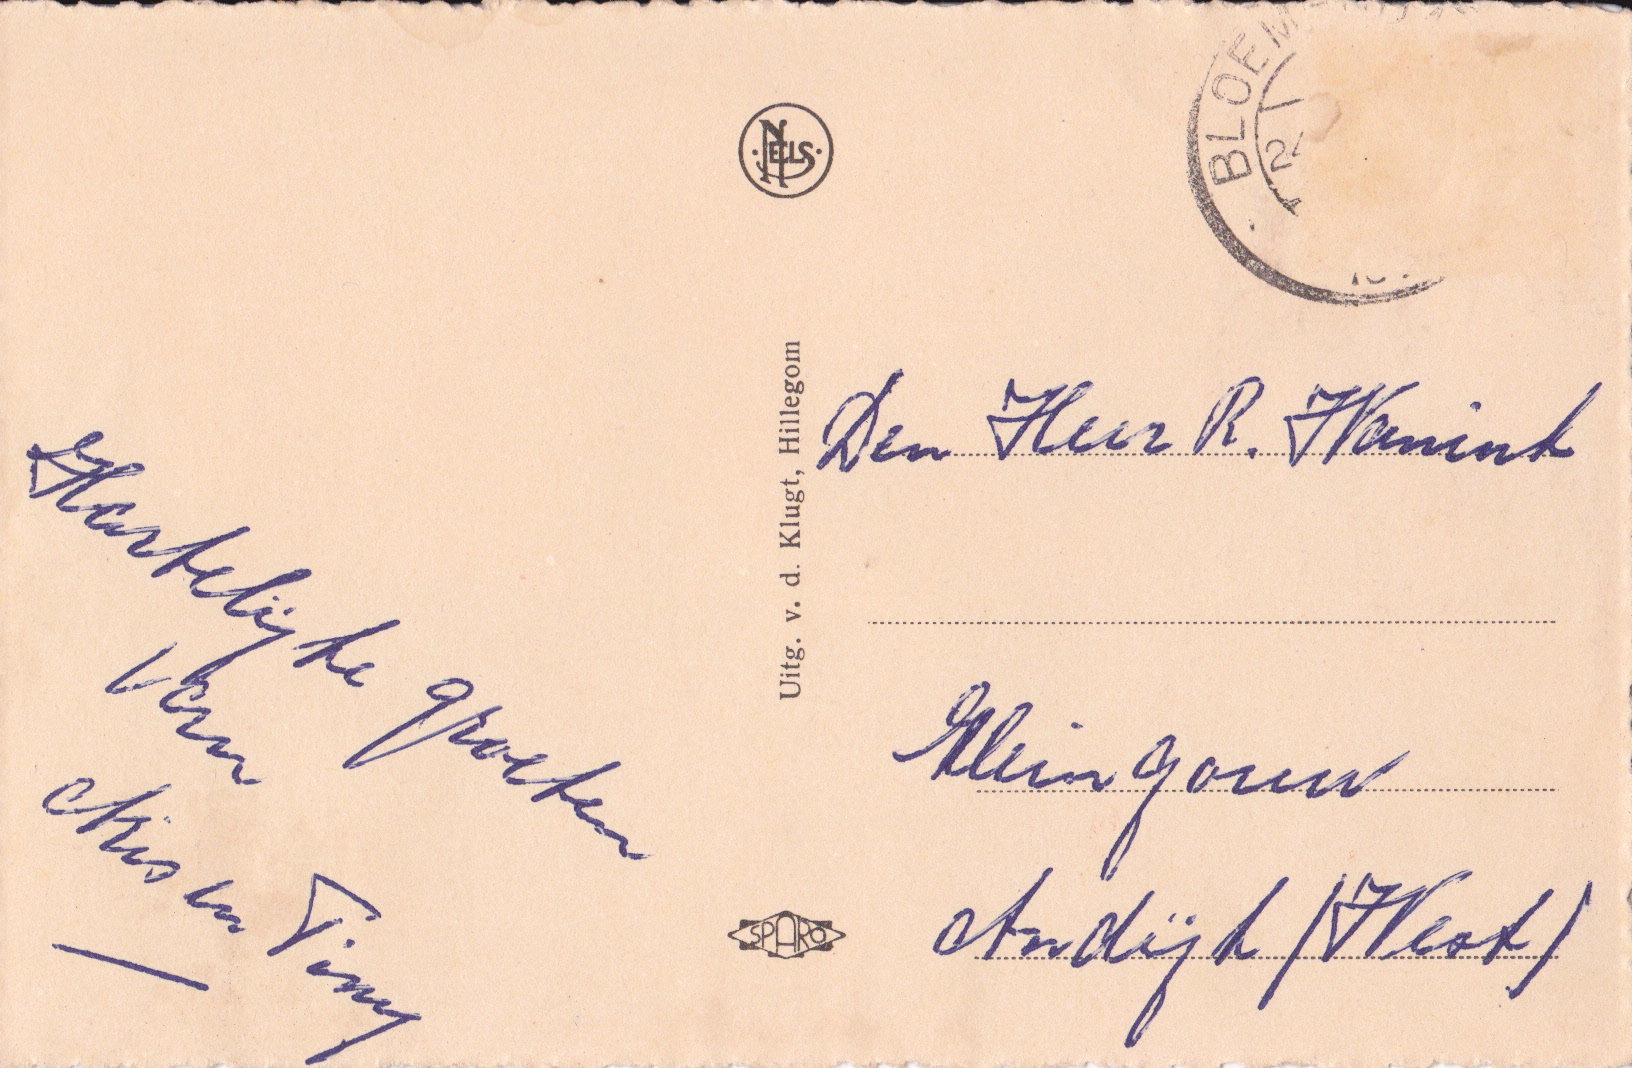 BLOEM
24
NELS
Uitg. v. d. Klugt, Hillegom
SPARO
Den Heer R. Wanink
Kleingouw
Andijk (West)
Hartelijke groeten
van
en Tiny